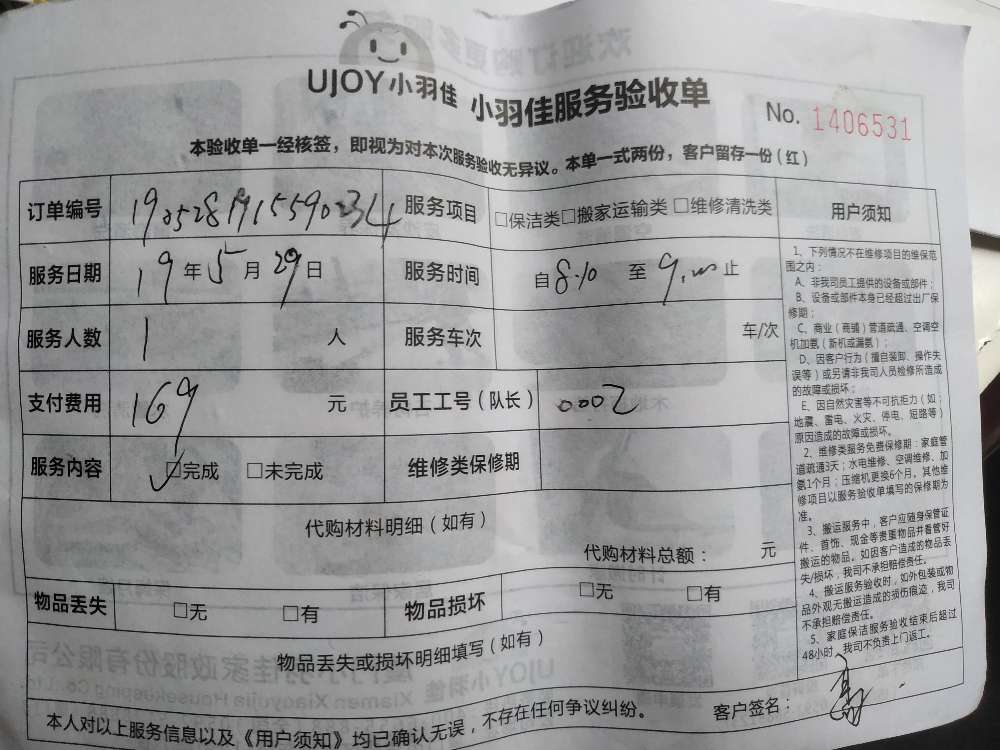 UJOY小羽佳 小羽佳服务验收单
No. 1406531
本验收单一经核签，即视为对本次服务验收无异议。本单一式两份，客户留存一份（红）
订单编号 服务项目 □保洁类□搬家运输类 □维修清洗类
服务日期 19年5月29日 服务时间 自8:10 至 9:00止
服务人数 1 人 服务车次 车/次
支付费用 169 元 员工工号（队长） 0.002
服务内容 □完成 □未完成 维修类保修期
代购材料明细（如有）
代购材料总额： 元
物品丢失 □无 □有 物品损坏 □无 □有
物品丢失或损坏明细填写（如有）
本人对以上服务信息以及《用户须知》均已确认无误，不存在任何争议纠纷。 客户签名：
用户须知
1、下列情况不在维修项目的维保范
围之内：
A、非我司员工提供的设备或部件；
B、设备或部件本身已经超过出厂保
修期；
C、商业（商铺）管道疏通、空调空
机加氨（新机或漏氨）；
D、因客户行为（擅自装卸、操作失
误等）或另请非我司人员检修所造成
的故障或损坏；
E、因自然灾害等不可抗拒力（如：
地震、雷电、火灾、停电、短路等）
原因造成的故障或损坏。
2、维修类服务免费保修期：家庭管
道疏通3天；水电维修、空调维修、加
氨1个月；压缩机更换6个月，其他维
修项目以服务验收单填写的保修期为
准。
3、搬运服务中，客户应随身保管证
件、首饰、现金等贵重物品并看管好
搬运的物品。如因客户造成的物品丢
失/损坏，我司不承担赔偿责任。
4、搬运服务验收时，如外包装或物
品外观无搬运造成的损伤痕迹，我司
不承担赔偿责任。
5、家庭保洁服务验收结束后超过
48小时，我司不负责上门返工。